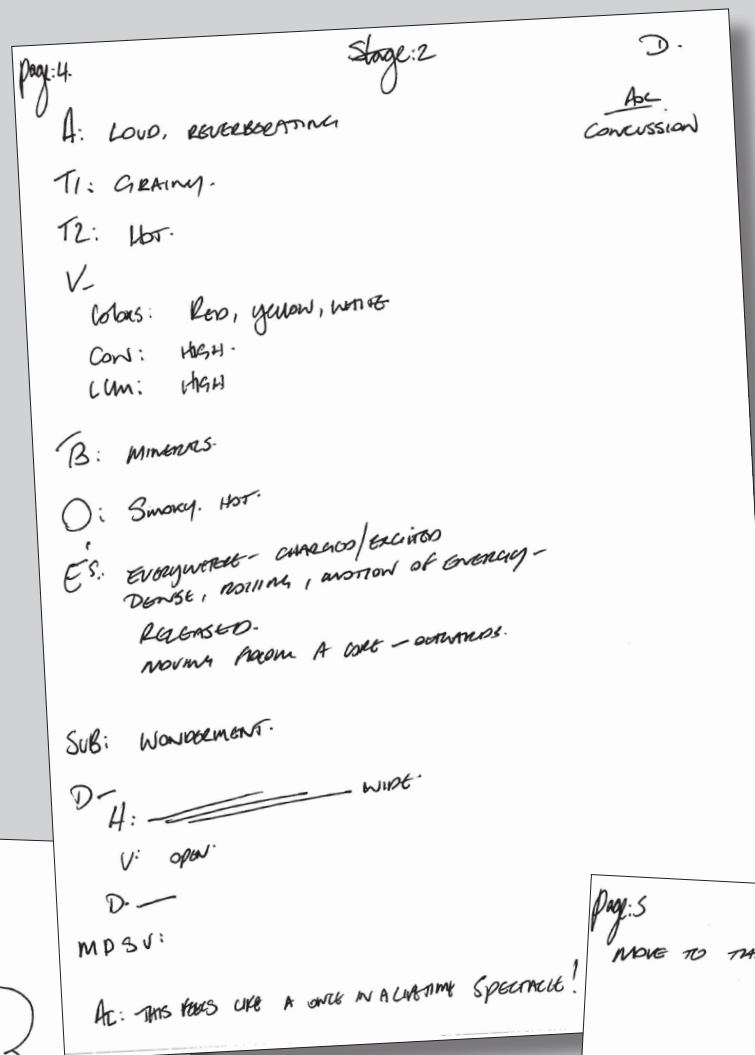 Page:4.
Stage:2
D.
AOL
CONCUSSION
A: LOUD, REVERBORATING
T1: GRAINY.
T2: HOT.
V-
Colors: RED, YELLOW, WHITE
CON: HIGH.
LUM: HIGH
TB: MINERALS.
O: SMOKY. HOT.
E's: EVERYWHERE - CHARGED/EXCITED
DENSE, ROLLING, MOTION OF ENERGY -
RELEASED.
MOVING FROM A CORE - OUTWARDS.
SUB: WONDERMENT.
D-
H: WIDE.
V: OPEN.
D. —
MDSV:
AI: THIS FEELS LIKE A ONCE IN A LIFETIME SPECTACLE!
Page:5
MOVE TO